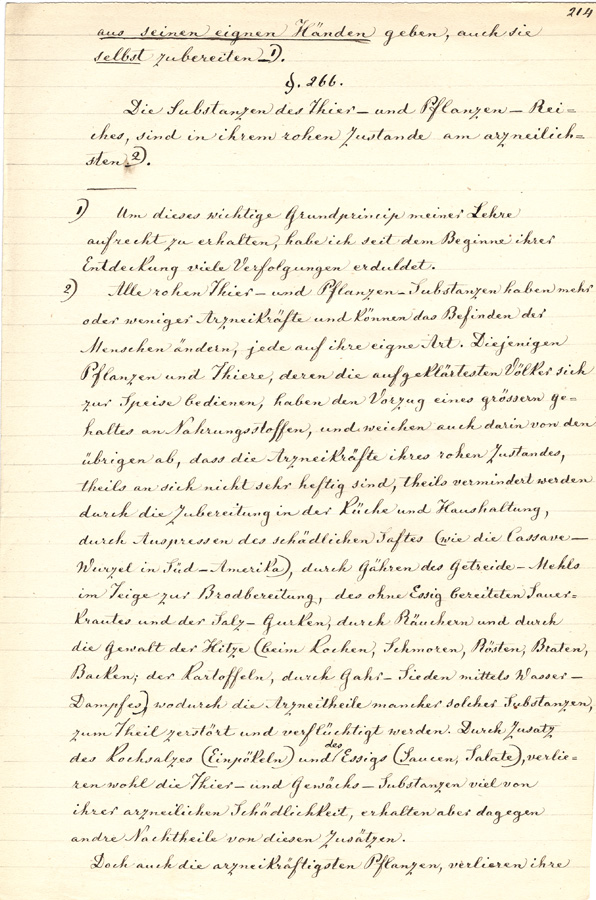 214
aus seinen eignen Händen geben, auch sie
selbst zubereiten 1).
§. 266.
Die Substanzen des Thier- und Pflanzen-Rei=
ches, sind in ihrem rohen Zustande am arzneilich=
sten 2).
1) Um dieses wichtige Grundprincip meiner Lehre
aufrecht zu erhalten, habe ich seit dem Beginne ihrer
Entdeckung viele Verfolgungen erduldet.
2) Alle rohen Thier- und Pflanzen-Substanzen haben mehr
oder weniger Arzneikräfte und können das Befinden der
Menschen ändern, jede auf ihre eigne Art. Diejenigen
Pflanzen und Thiere, deren die aufgeklärtesten Völker sich
zur Speise bedienen, haben den Vorzug eines grössern ge=
haltes an Nahrungsstoffen, und weichen auch darin von den
übrigen ab, dass die Arzneikräfte ihres rohen Zustandes,
theils an sich nicht sehr heftig sind, theils vermindert werden
durch die Zubereitung in der Küche und Haushaltung,
durch Auspressen des schädlichen Saftes (wie die Cassave-
Wurzel in Süd-Amerika), durch Gähren des Getreide-Mehls
im Teige zur Brodbereitung, des ohne Essig bereiteten Sauer-
krautes und der Salz-Gurken, durch Räuchern und durch
die Gewalt der Hitze (beim Kochen, Schmoren, Rösten, Braten,
Backen; der Kartoffeln, durch Gahr-Sieden mittels Wasser-
Dampfes) wodurch die Arzneitheile mancher solcher Substanzen,
zum Theil zerstört und verflüchtigt werden. Durch Zusatz
des Kochsalzes (Einpökeln) und des Essigs (Saucen, Salate), verlie=
ren wohl die Thier- und Gewächs-Substanzen viel von
ihrer arzneilichen Schädlichkeit, erhalten aber dagegen
andre Nachtheile von diesen Zusätzen.
Doch auch die arzneikräftigsten Pflanzen, verlieren ihre